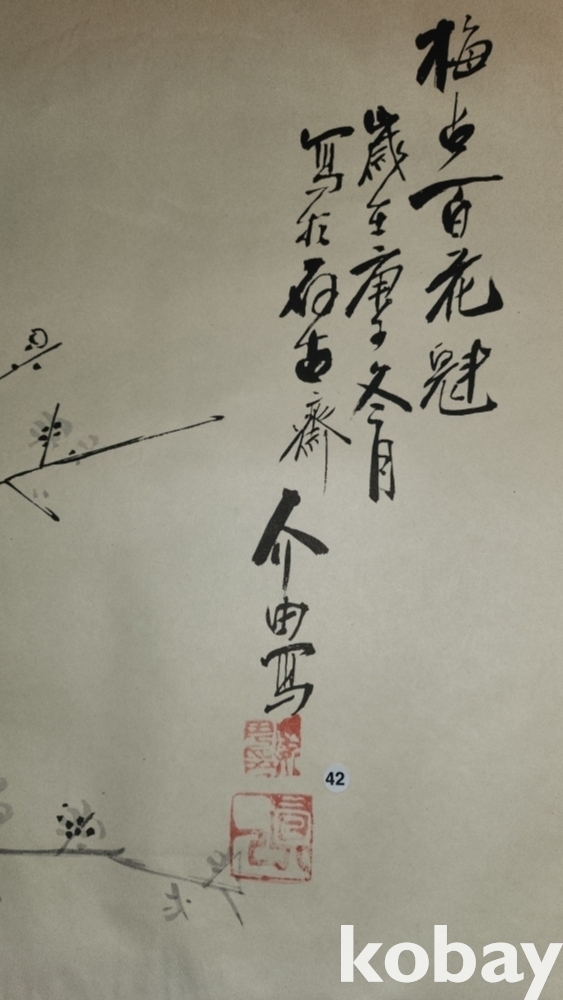 梅占百花魁
歲在庚子冬月
寫於存古齋
介由寫
42
kobay